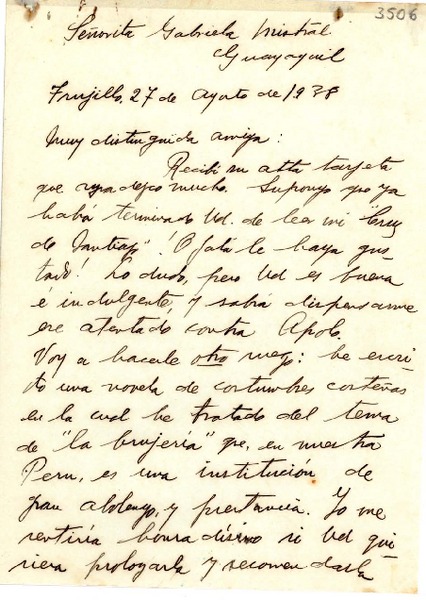 3506
Señorita Gabriela Mistral
Guayaquil
Trujillo, 27 de agosto de 1938
Muy distinguida amiga:
Recibí su atta tarjeta
que agradezco mucho. Supongo que ya
habrá terminado Ud. de leer mi "Cruz
de Santiago" ¡Ojalá le haya gus-
tado! Lo dudo, pero Ud es buena
é indulgente, y sabrá dispensarme
ese atentado contra Apolo.
Voy a hacerle otro ruego: he escri-
to una novela de costumbres costeñas
en la cual he tratado del tema
de "la brujería" que, en nuestra
Perú, es una institución de
gran abolengo, y prestancia. Yo me
sentiría honradísimo si Ud qui-
siera prologarla y recomendarla